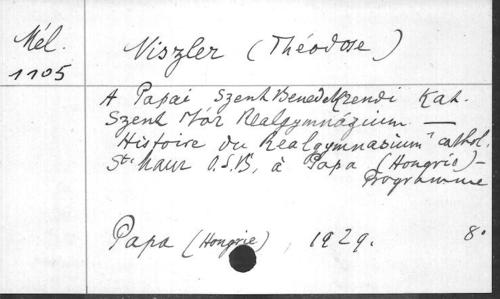 Mél.
1105
Viszler (Théodose)
A Papai Szent Benedekrendi Kat.
Szent Mór Realgymnázium —
Histoire du Realgymnasium cathol.
St. Maur O.S.B., à Papa (Hongrie) –
Programme
Papa (Hongrie), 1929. 8°